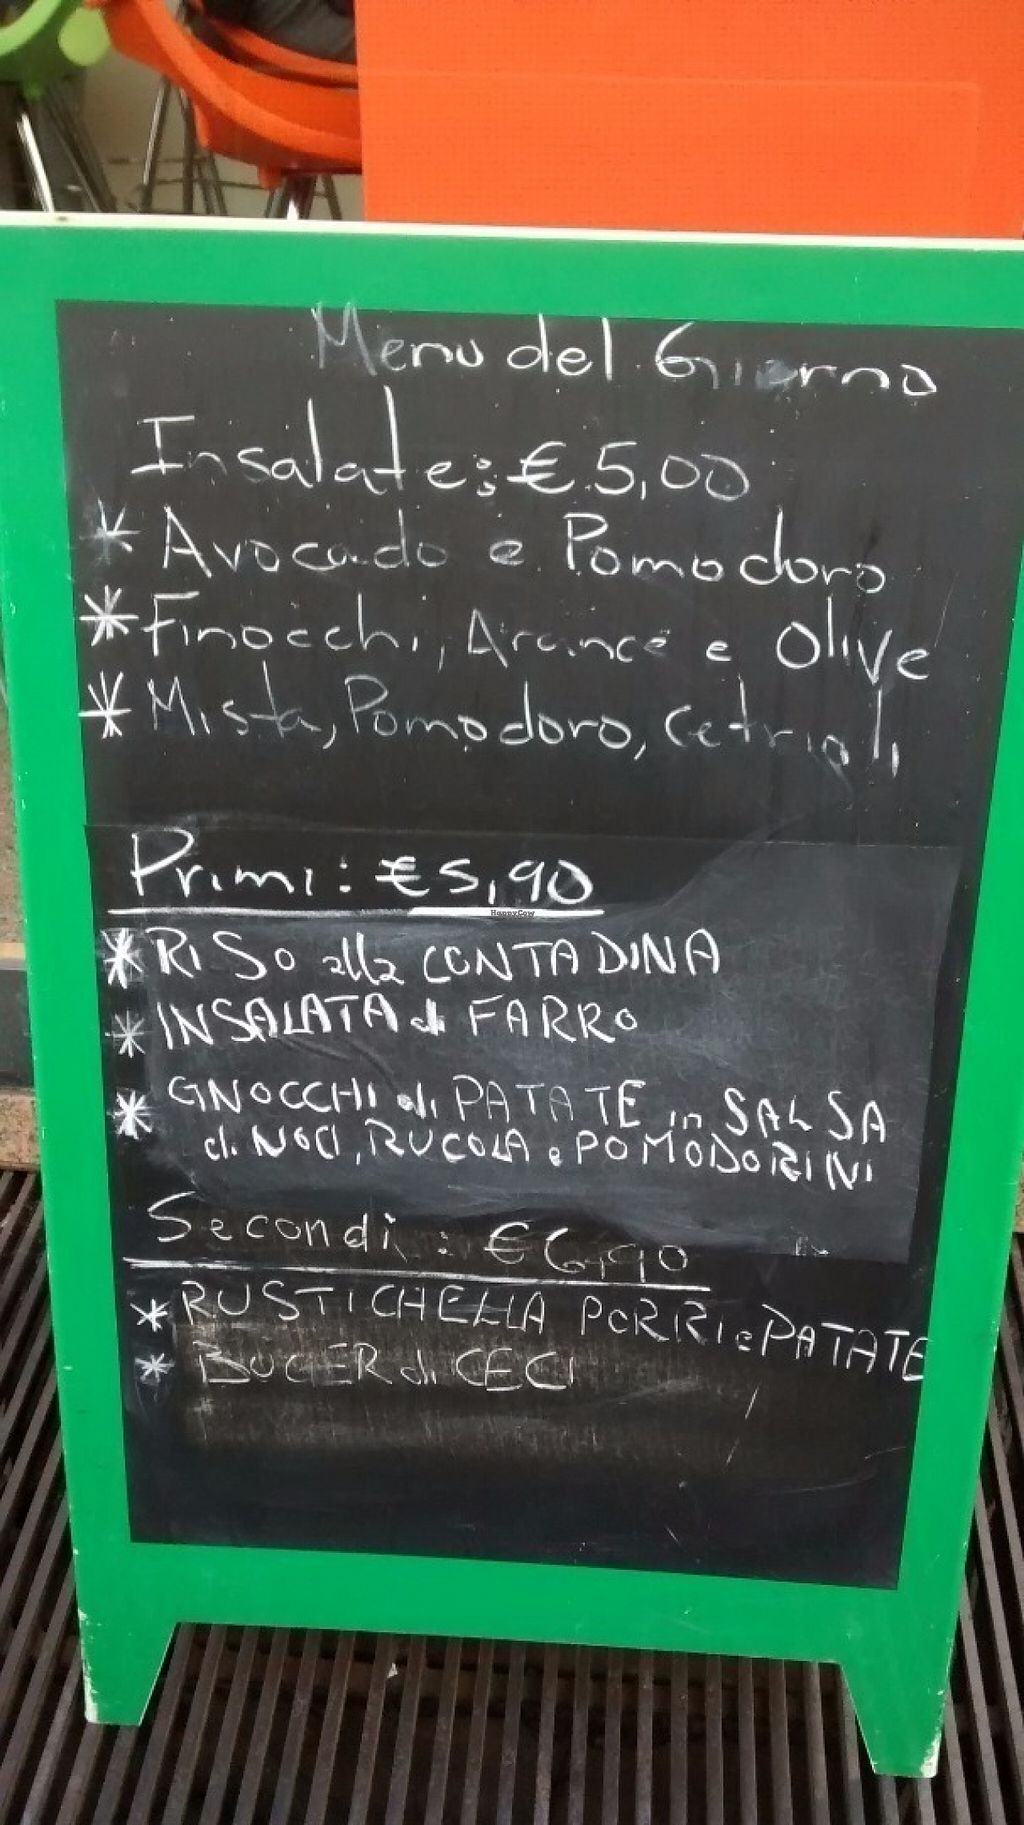 Menu del Giorno
Insalate: € 5,00
* Avocado e Pomodoro
* Finocchi, Arance e Olive
* Mista, Pomodoro, Cetrioli
Primi: € 5,90
HappyCow
* RISO alla CONTADINA
* INSALATA di FARRO
* GNOCCHI di PATATE in SALSA
di NOCI, RUCOLA e POMODORINI
Secondi: € 6,90
* RUSTICHELLA PORRI e PATATE
* BUGER di CECI